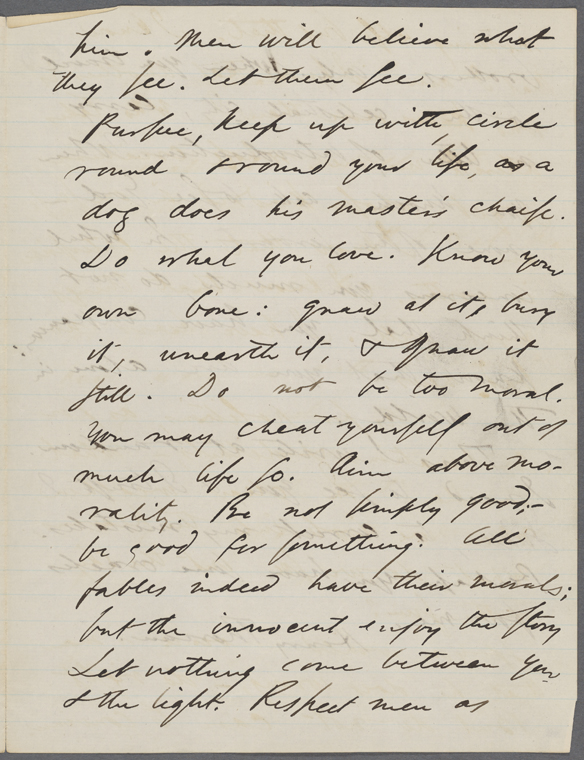 him. Men will believe what
they see. Let them see.
Pursue, keep up with, circle
round & round your life, as a
dog does his master's chaise.
Do what you love. Know your
own bone: gnaw at it, bury
it, unearth it, & gnaw it
still. Do not be too moral.
You may cheat yourself out of
much life so. Aim above mo-
rality. Be not simply good;-
be good for something. All
fables indeed have their morals;
but the innocent enjoy the story
Let nothing come between you
& the light. Respect men as